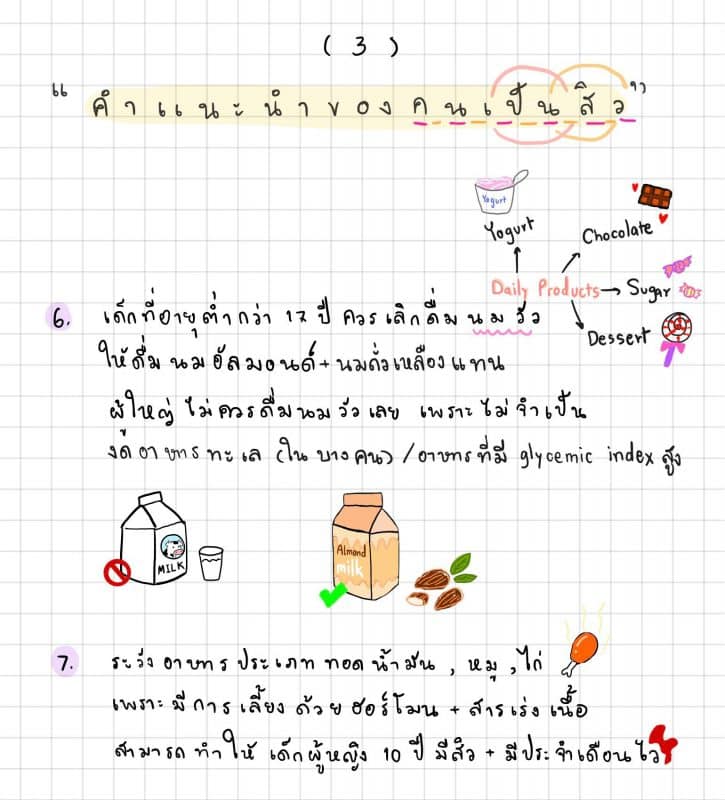 ( 3 )
“ คำแนะนำของคนเป็นสิว ”
Yogurt
Yogurt
Chocolate
Daily Products → Sugar
Dessert
6. เด็กที่อายุต่ำกว่า 17 ปี ควรเลิกดื่มนมวัว
ให้ดื่มนมอัลมอนด์ + นมถั่วเหลืองแทน
ผู้ใหญ่ไม่ควรดื่มนมวัวเลย เพราะไม่จำเป็น
งดอาหารทะเล (ในบางคน) / อาหารที่มี glycemic index สูง
MILK
Almond
milk
7. ระวังอาหารประเภททอดน้ำมัน , หมู , ไก่
เพราะมีการเลี้ยงด้วยฮอร์โมน + สารเร่งเนื้อ
สามารถทำให้เด็กผู้หญิง 10 ปี มีสิว + มีประจำเดือนไว